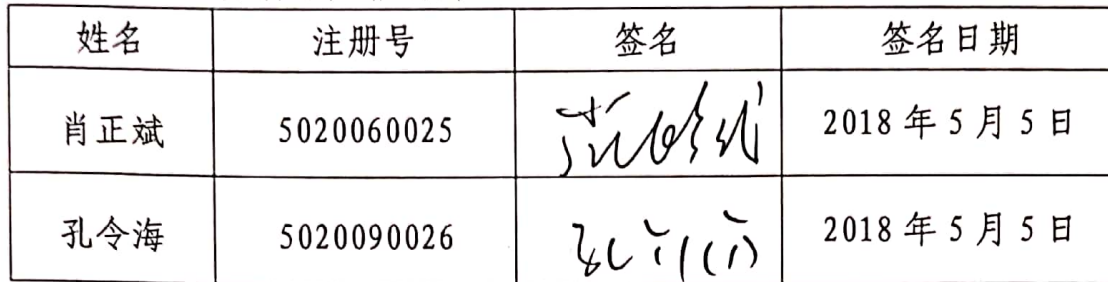 姓名 注册号 签名 签名日期
肖正斌 5020060025 2018年5月5日
孔令海 5020090026 2018年5月5日